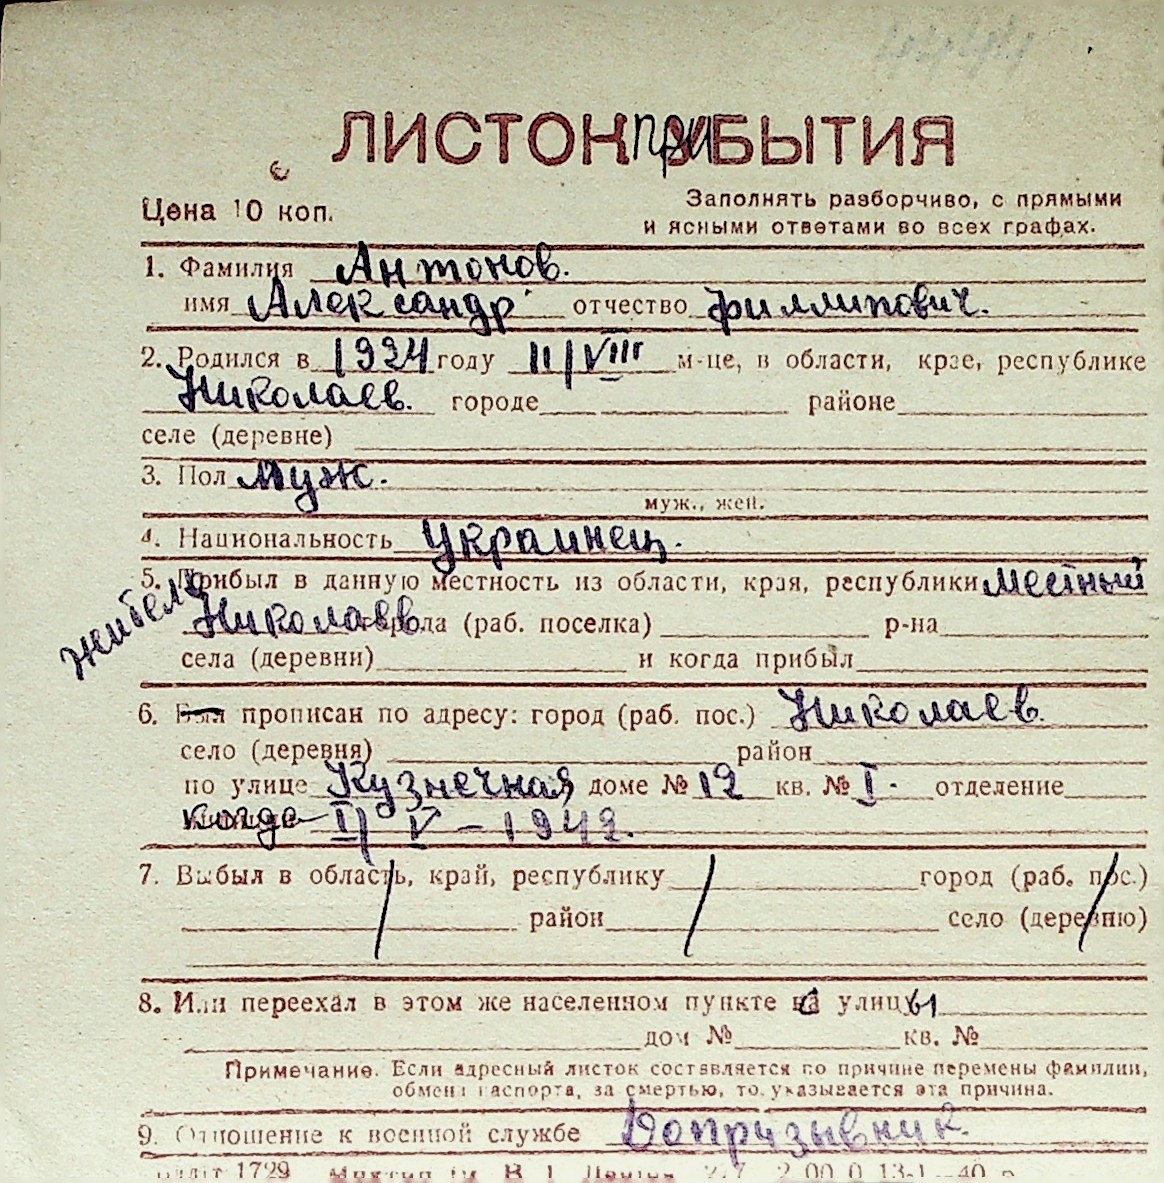 ЛИСТОК ПриБЫТИЯ
Цена 10 коп.
Заполнять разборчиво, с прямыми
и ясными ответами во всех графах.
1. Фамилия Антонов.
имя Александр отчество Филлипович.
2. Родился в 1924 году 11/VIII м-це, в области, крае, республике
Николаев. городе районе
селе (деревне)
3. Пол Муж.
муж., жен.
4. Национальность Украинец.
5. Прибыл в данную местность из области, края, республики местный
житель Николаев города (раб. поселка) р-на
села (деревни) и когда прибыл
6. Был прописан по адресу: город (раб. пос.) Николаев.
село (деревня) район
по улице Кузнечная доме № 12 кв. № I. отделение
когда I/V-1942.
7. Выбыл в область, край, республику город (раб. пос.)
район село (деревню)
8. Или переехал в этом же населенном пункте с улицы
дом № кв. №
Примечание. Если адресный листок составляется по причине перемены фамилии,
обмена паспорта, за смертью, то указывается эта причина.
9. Отношение к военной службе Допризывник.
1729